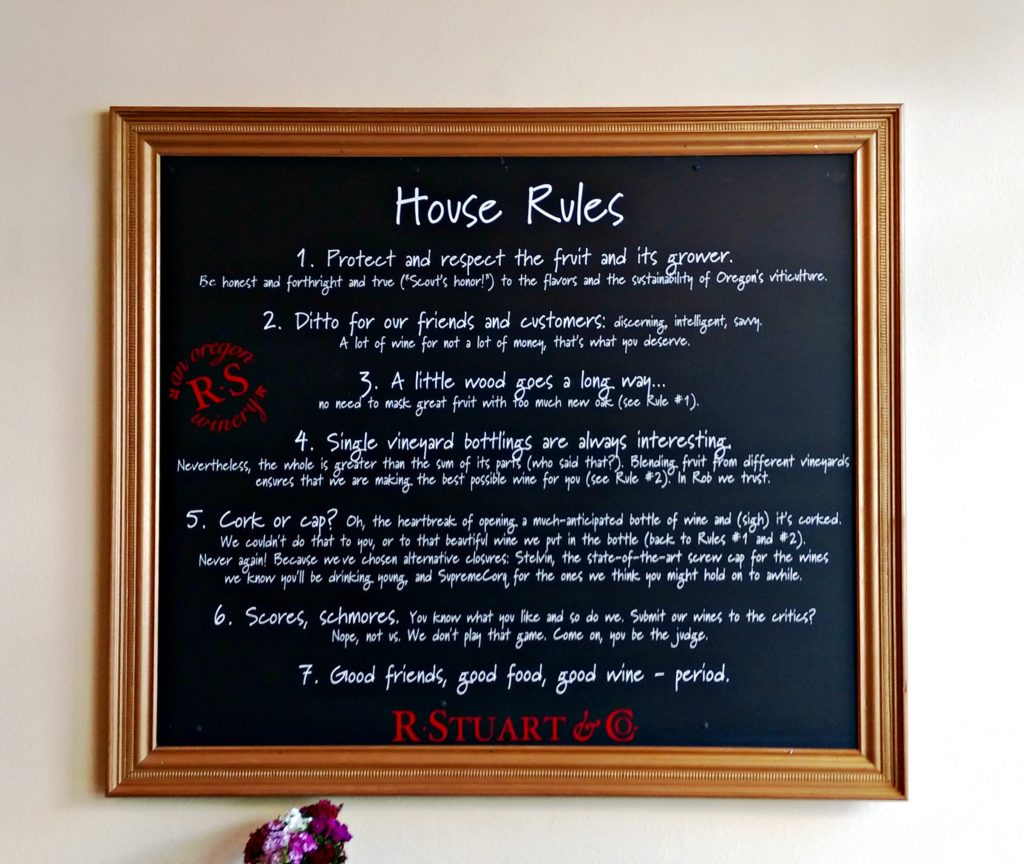 House Rules
1. Protect and respect the fruit and its grower.
Be honest and forthright and true ("Scout's honor!") to the flavors and the sustainability of Oregon's viticulture.
2. Ditto for our friends and customers: discerning, intelligent, savvy.
A lot of wine for not a lot of money, that's what you deserve.
3. A little wood goes a long way...
no need to mask great fruit with too much new oak (see Rule #1).
an oregon
R·S
winery
4. Single vineyard bottlings are always interesting.
Nevertheless, the whole is greater than the sum of its parts (who said that?). Blending fruit from different vineyards
ensures that we are making the best possible wine for you (see Rule #2). In Rob we trust.
5. Cork or cap? Oh, the heartbreak of opening a much-anticipated bottle of wine and (sigh) it's corked.
We couldn't do that to you, or to that beautiful wine we put in the bottle (back to Rules #1 and #2).
Never again! Because we've chosen alternative closures: Stelvin, the state-of-the-art screw cap for the wines
we know you'll be drinking young, and SupremeCorq for the ones we think you might hold on to awhile.
6. Scores, schmores. You know what you like and so do we. Submit our wines to the critics?
Nope, not us. We don't play that game. Come on, you be the judge.
7. Good friends, good food, good wine - period.
R·STUART & CO.